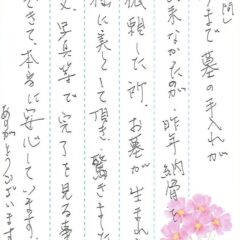 まで墓の手入れが
来なかったのが、昨年納骨を
依頼した所、お墓が生まれ
様に美しくて頂き、驚きました
文、写真等で完了を見る事
できて、本当に安心しています。
ありがとうございます